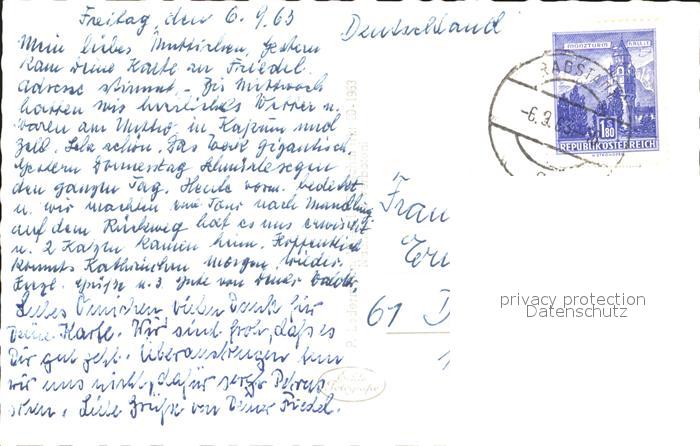 Freitag, den 6.9.63
Deutschland
Mein liebes Muttilein, Gestern
kam Deine Karte an Friedel.
Adresse stimmt. - Bis Mittwoch
hatten wir herrliches Wetter u.
waren am Mittw. in Kaprun und
Zell. Sehr schön. Das war gigantisch.
Gestern Donnerstag Schnürlesregen
den ganzen Tag. Heute vorm. bedeckt
u. wir machten eine Tour nach Mandling
auf dem Rückweg hat es uns erwischt
u. 2 Katzen kamen heim. Hoffentlich
kommts Kathrinchen morgen wieder.
Herzl. Grüße u. s. Gute von Deiner
Liebes Omichen, vielen Dank für
Deine Karte. Wir sind froh, daß es
Dir gut geht. Überanstrengen tun
wir uns nicht, dafür sorgt Petrus
schon. Liebe Grüße von Deiner Friedel.
Frau
61 D
MÜNZTURM HALL i. T.
RADSTADT
-6.9.63
1.80
REPUBLIK ÖSTERREICH
Echte
Fotografie
privacy protection
Datenschutz